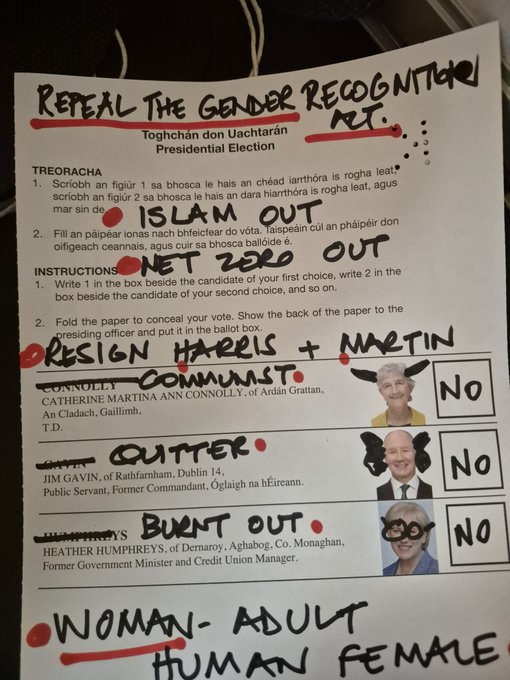 REPEAL THE GENDER RECOGNITION
ACT.
Toghchán don Uachtarán
Presidential Election
TREORACHA
1. Scríobh an figiúr 1 sa bhosca le hais an chéad iarrthóra is rogha leat,
scríobh an figiúr 2 sa bhosca le hais an dara hiarrthóra is rogha leat, agus
mar sin de.
ISLAM OUT
2. Fill an páipéar ionas nach bhfeicfear do vóta. Taispeáin cúl an pháipéir don
oifigeach ceannais, agus cuir sa bhosca ballóide é.
NET ZERO OUT
INSTRUCTIONS
1. Write 1 in the box beside the candidate of your first choice, write 2 in the
box beside the candidate of your second choice, and so on.
2. Fold the paper to conceal your vote. Show the back of the paper to the
presiding officer and put it in the ballot box.
RESIGN HARRIS + MARTIN
CONNOLLY COMMUNIST.
CATHERINE MARTINA ANN CONNOLLY, of Ardán Grattan,
An Cladach, Gaillimh,
T.D.
NO
GAVIN QUITTER.
JIM GAVIN, of Rathfarnham, Dublin 14,
Public Servant, Former Commandant, Óglaigh na hÉireann.
NO
HUMPHREYS BURNT OUT.
HEATHER HUMPHREYS, of Dernaroy, Aghabog, Co. Monaghan,
Former Government Minister and Credit Union Manager.
NO
WOMAN - ADULT
HUMAN FEMALE